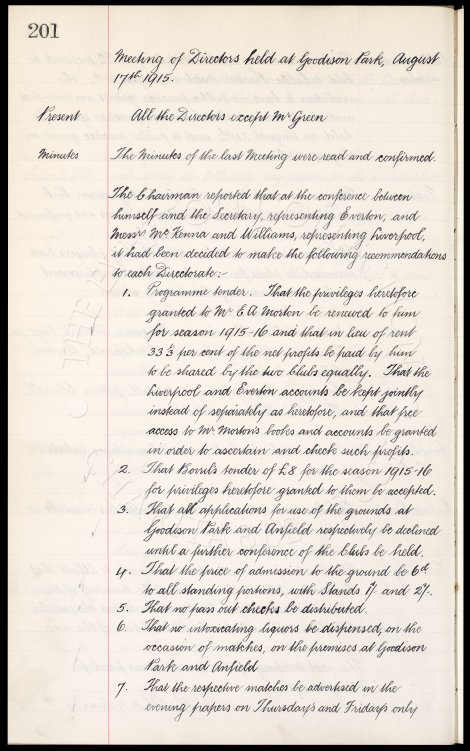 201
Meeting of Directors held at Goodison Park, August
17th 1915.
Present All the Directors except Mr Green
Minutes The Minutes of the last Meeting were read and confirmed.
The Chairman reported that at the conference between
himself and the Secretary, representing Everton, and
Messrs McKenna and Williams, representing Liverpool,
it had been decided to make the following recommendations
to each Directorate:-
1. Programme tender. That the privileges heretofore
granted to Mr E A Morton be renewed to him
for season 1915-16 and that in lieu of rent
33⅓ per cent of the net profits be paid by him
to be shared by the two Clubs equally. That the
Liverpool and Everton accounts be kept jointly
instead of separately as heretofore, and that free
access to Mr Morton's books and accounts be granted
in order to ascertain and check such profits.
2. That Bovril's tender of £8 for the season 1915-16
for privileges heretofore granted to them be accepted.
3. That all applications for use of the grounds at
Goodison Park and Anfield respectively be declined
until a further conference of the Clubs be held.
4. That the price of admission to the ground be 6d
to all standing portions, with Stands 1/- and 2/-.
5. That no pass out checks be distributed.
6. That no intoxicating liquors be dispensed, on the
occasion of matches, on the premises at Goodison
Park and Anfield
7. That the respective matches be advertised in the
evening papers on Thursdays and Fridays only